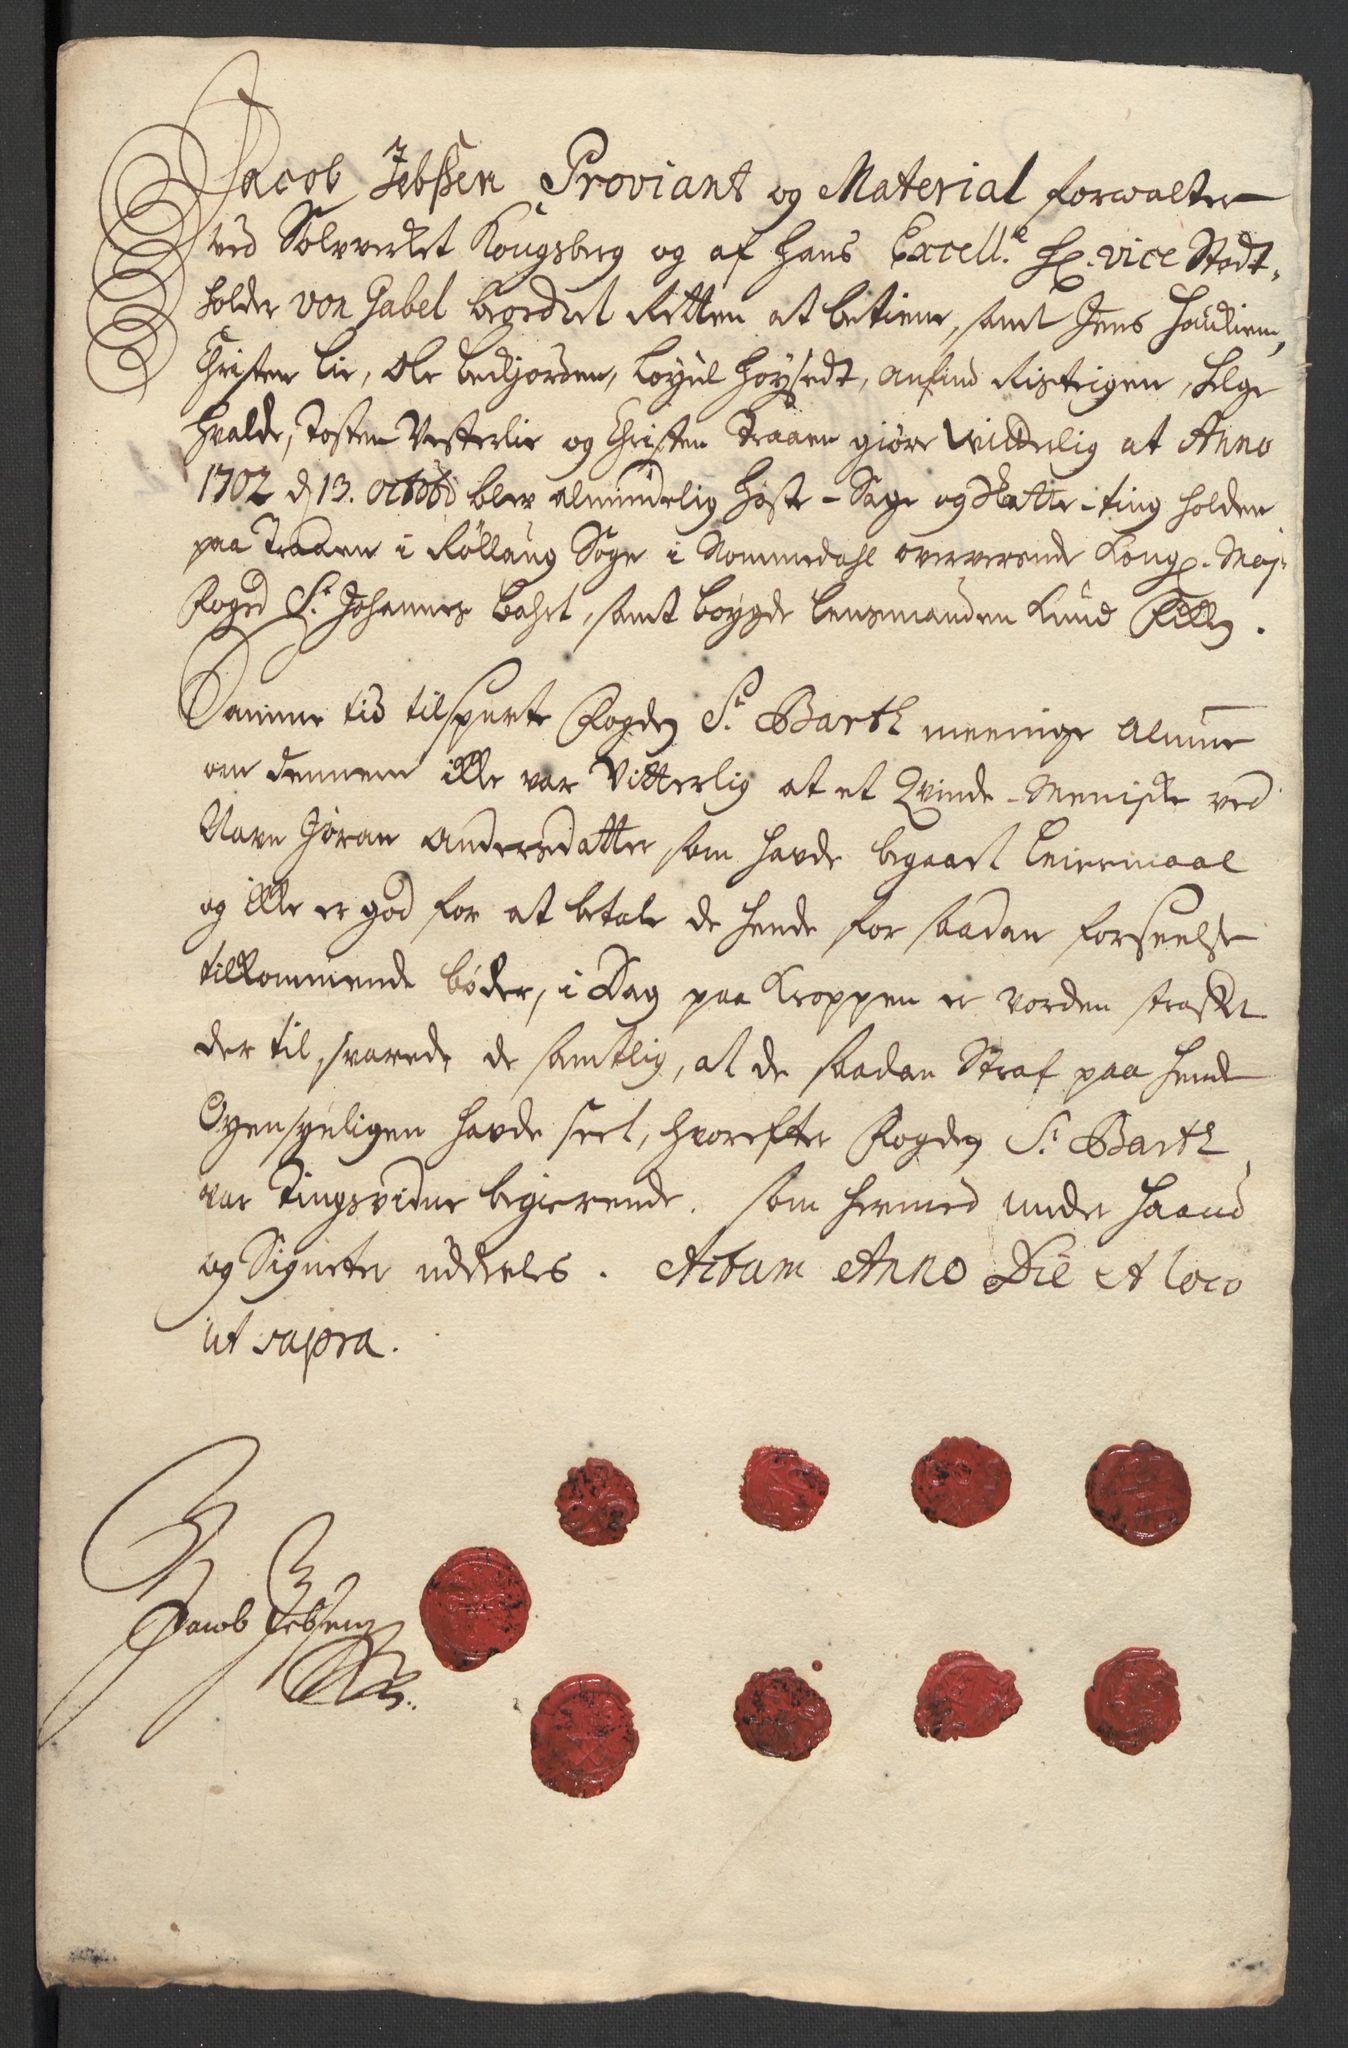 Jacob Jebsen Proviant og Material forwalter
ved Sølvverket Kongsberg og af Hans Excell.e H. vice Stadt-
holder von Gabel beordret Retten at betiene, samt Jens
Christen Lie, Ole Bedjorden, Helge
Hvalde, Tosten Vesterlie og Christen Traaen giøre Witterlig at Anno
1702 d 13. octob blev almindelig Høste-Sage og Skatte-ting holden
paa Traaen i Røllaug Sogn i Nommedahl oververende Kong. May:
Foged Sr. Johannes Bahrt, samt boygde Lensmanden Knud
Samme tid tilspurte Fogden Sr. Barth meenige Almue
om dennem ikke var Vitterlig at et Qvinde-Meniske ved
Navn Jøran Andersdatter som hafde begaaet Leiermaal
og ikke er god for at betale de hende for saadan forseelse
tilkommende bøder, i Dag paa Kroppen er vorden straffet
der til svarede de samtlig, at de saadan Straf paa hende
Øyensynligen hafde seet, hvorefter Fogden Sr. Barth
var Tingsvidne begierende. som hermed under haand
og Signeter uddeeles. Actum Anno Die et loco
ut supra.
Jacob Jebsen